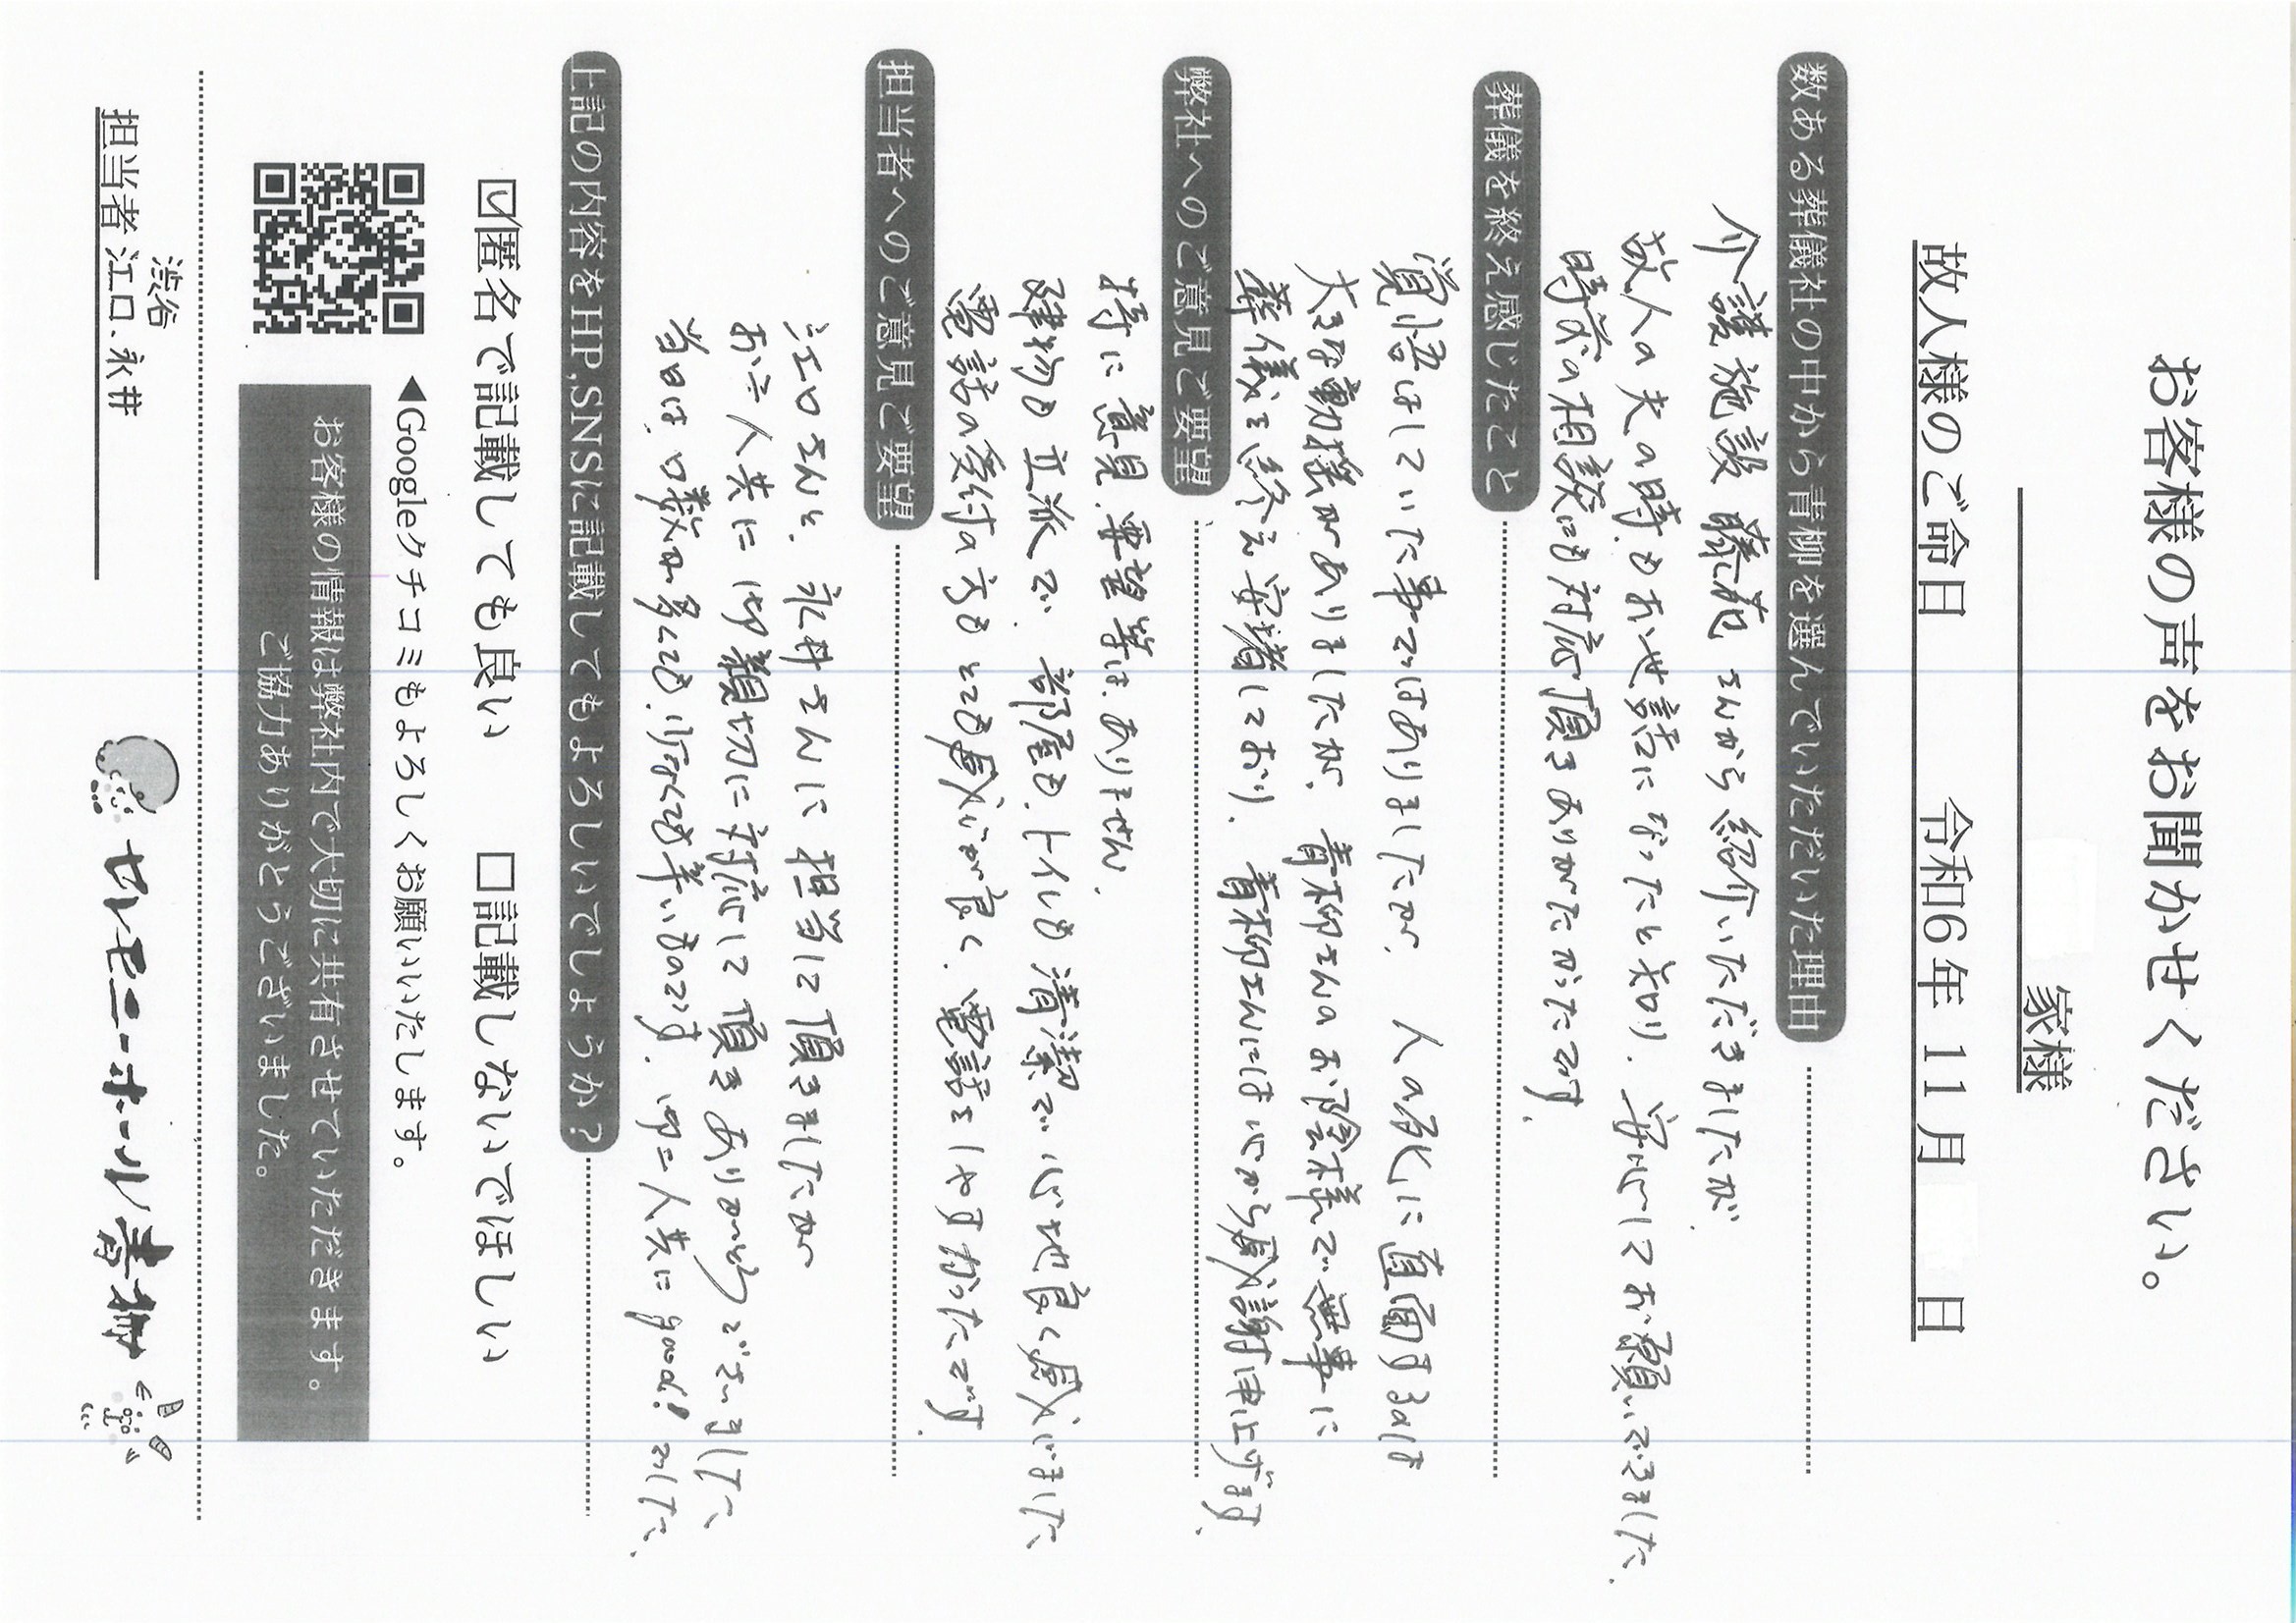 お客様の声をお聞かせください。
家様
故人様のご命日 令和6年 11月 日
数ある葬儀社の中から青柳を選んでいただいた理由
介護施設 藤苑さんから紹介いただきましたが
故人の夫の時もお世話になったと知り、安心してお願いできました、
時前の相談にも対応頂きありがたかったです、
葬儀を終え感じたこと
覚悟はしていた事ではありましたが、人の死に直面するのは
大きな動揺がありましたが、青柳さんのお陰様で無事に
葬儀を終え安堵しており、青柳さんには心から感謝申上げます、
弊社へのご意見ご要望
特に意見、要望等は、ありません、
建物も立派で、部屋も、トイレも清潔で心地良く感じました
電話の受付の方もとても感じが良く、電話をしやすかったです、
担当者へのご意見ご要望
江口さんと、永井さんに担当して頂きましたが
お二人共に御親切に対応して頂きありがとうございました
当日は、口数が多くても、少なくても辛いものです、御二人共にgood!でした、
上記の内容をHP,SNSに記載してもよろしいでしょうか？
☑匿名で記載しても良い □記載しないでほしい
◀Googleクチコミもよろしくお願いいたします。
お客様の情報は弊社内で大切に共有させていただきます。
ご協力ありがとうございました。
渋谷
担当者 江口、永井
セレモニーホール青柳